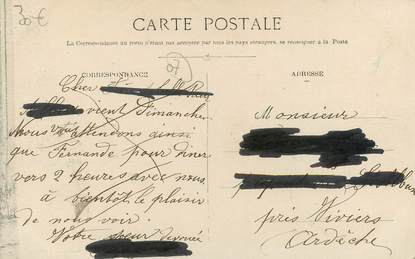 30 €
CARTE POSTALE
La Correspondance au recto n'étant pas acceptée par tous les pays étrangers, se renseigner à la Poste
07
CORRESPONDANCE
Cher
vient Dimanche
Nous vous attendons ainsi
que Fernande pour diner
vers 2 heures avec nous
à bientôt le plaisir
de nous voir.
Votre sœur dévouée
ADRESSE
Monsieur
près Viviers
Ardèche